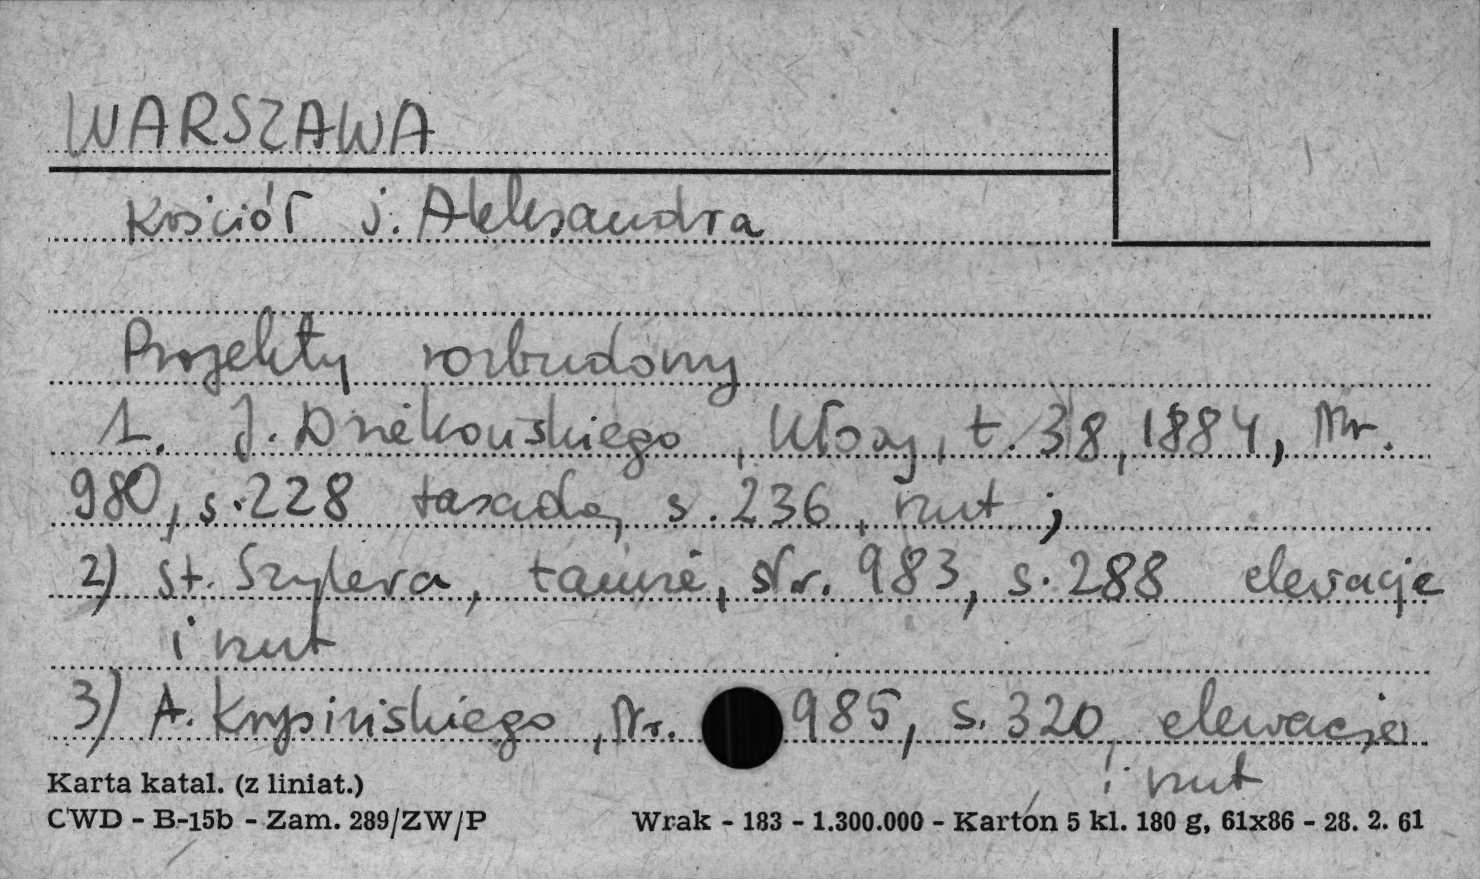 WARSZAWA
Kościół ś. Aleksandra
Projekty rozbudowy
1. J. Dziekońskiego, Kłosy, t. 38, 1884, Nr.
980, s. 228 fasada, s. 236, rzut ;
2) St. Szylera, tamże, Nr. 983, s. 288 elewacje
i rzut
3) A. Krysińskiego, Nr. 985, s. 320, elewacje
i rzut
Karta katal. (z liniat.)
CWD - B-15b - Zam. 289/ZW/P Wrak - 183 - 1.300.000 - Karton 5 kl. 180 g, 61x86 - 28. 2. 61